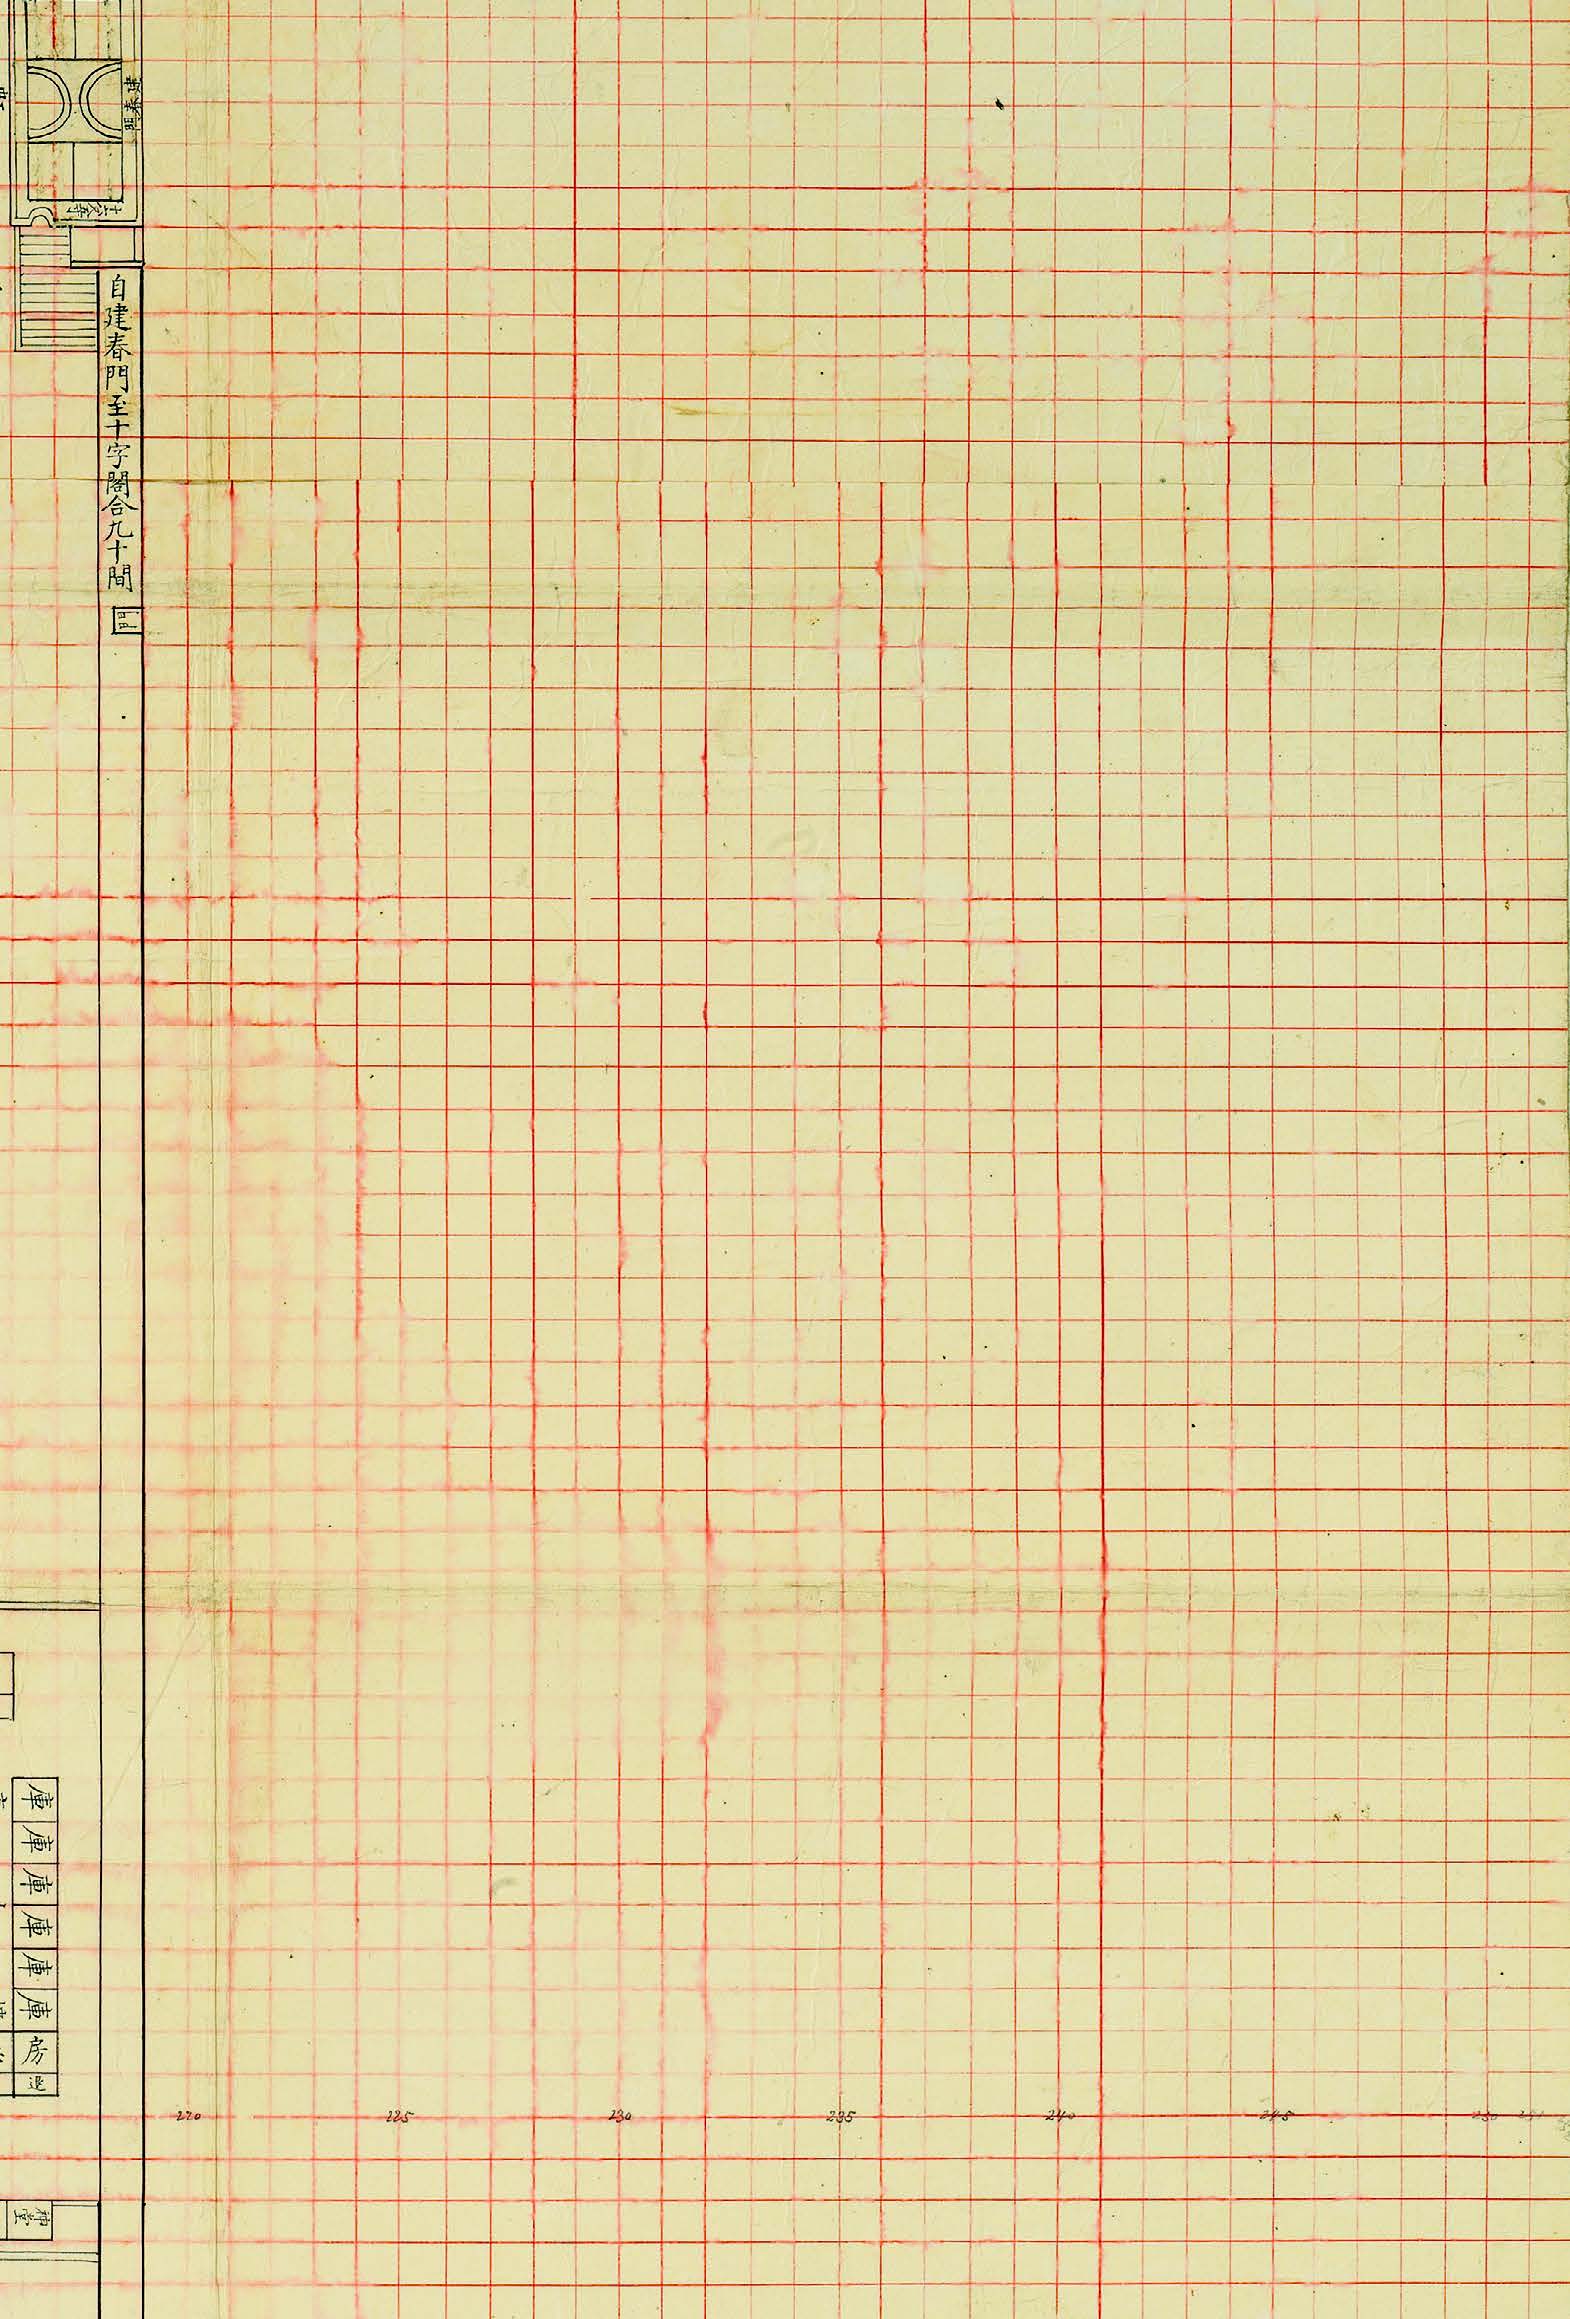 自建春門至十字閣合九十間
庫
庫
庫
庫
庫
庫
房
神堂
220 225 230 235 240 245 250 251